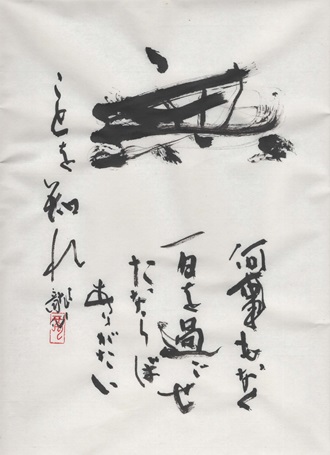 無
何事もなく
一日を過ごせ
たならば
ありがたい
ことを知れ